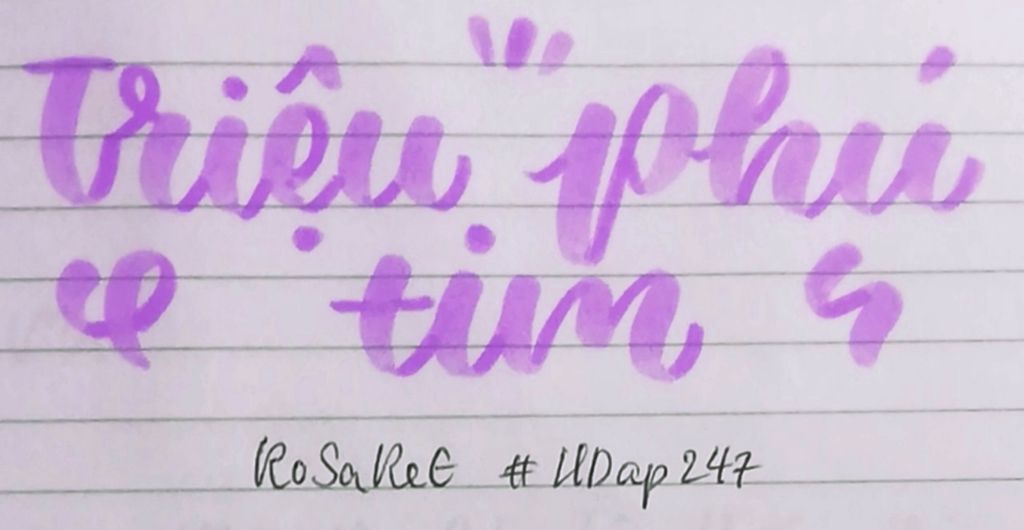 Triệu phú
tim
RoSaReE #HDap247